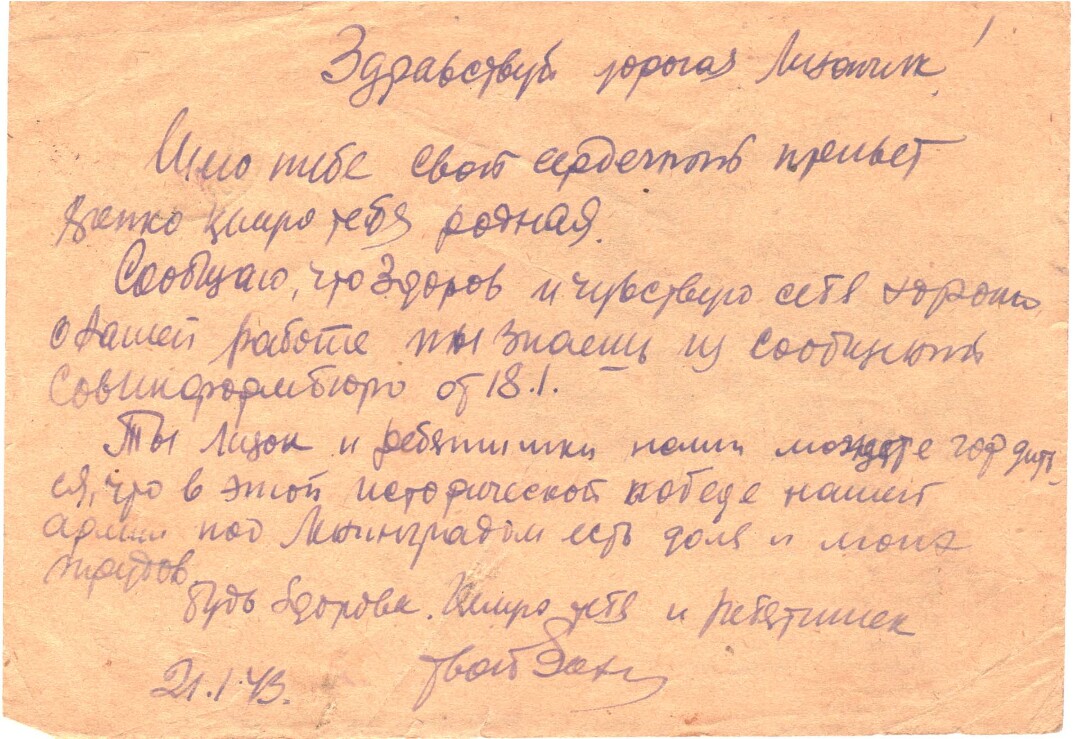 Здравствуй дорогая Лизочик!
Шлю тебе свой сердечный привет
крепко целую тебя родная.
Сообщаю, что Здоров и чувствую себя хорошо,
о нашей работе ты знаешь из сообщений
Совинформбюро от 18.1.
Ты Лизок и ребятишки наши можете гордить-
ся, что в этой исторической победе нашей
армии под Ленинградом есть доля и моих
трудов.
Будь здорова. Целую тебя и ребятишек
твой
21.1.43.